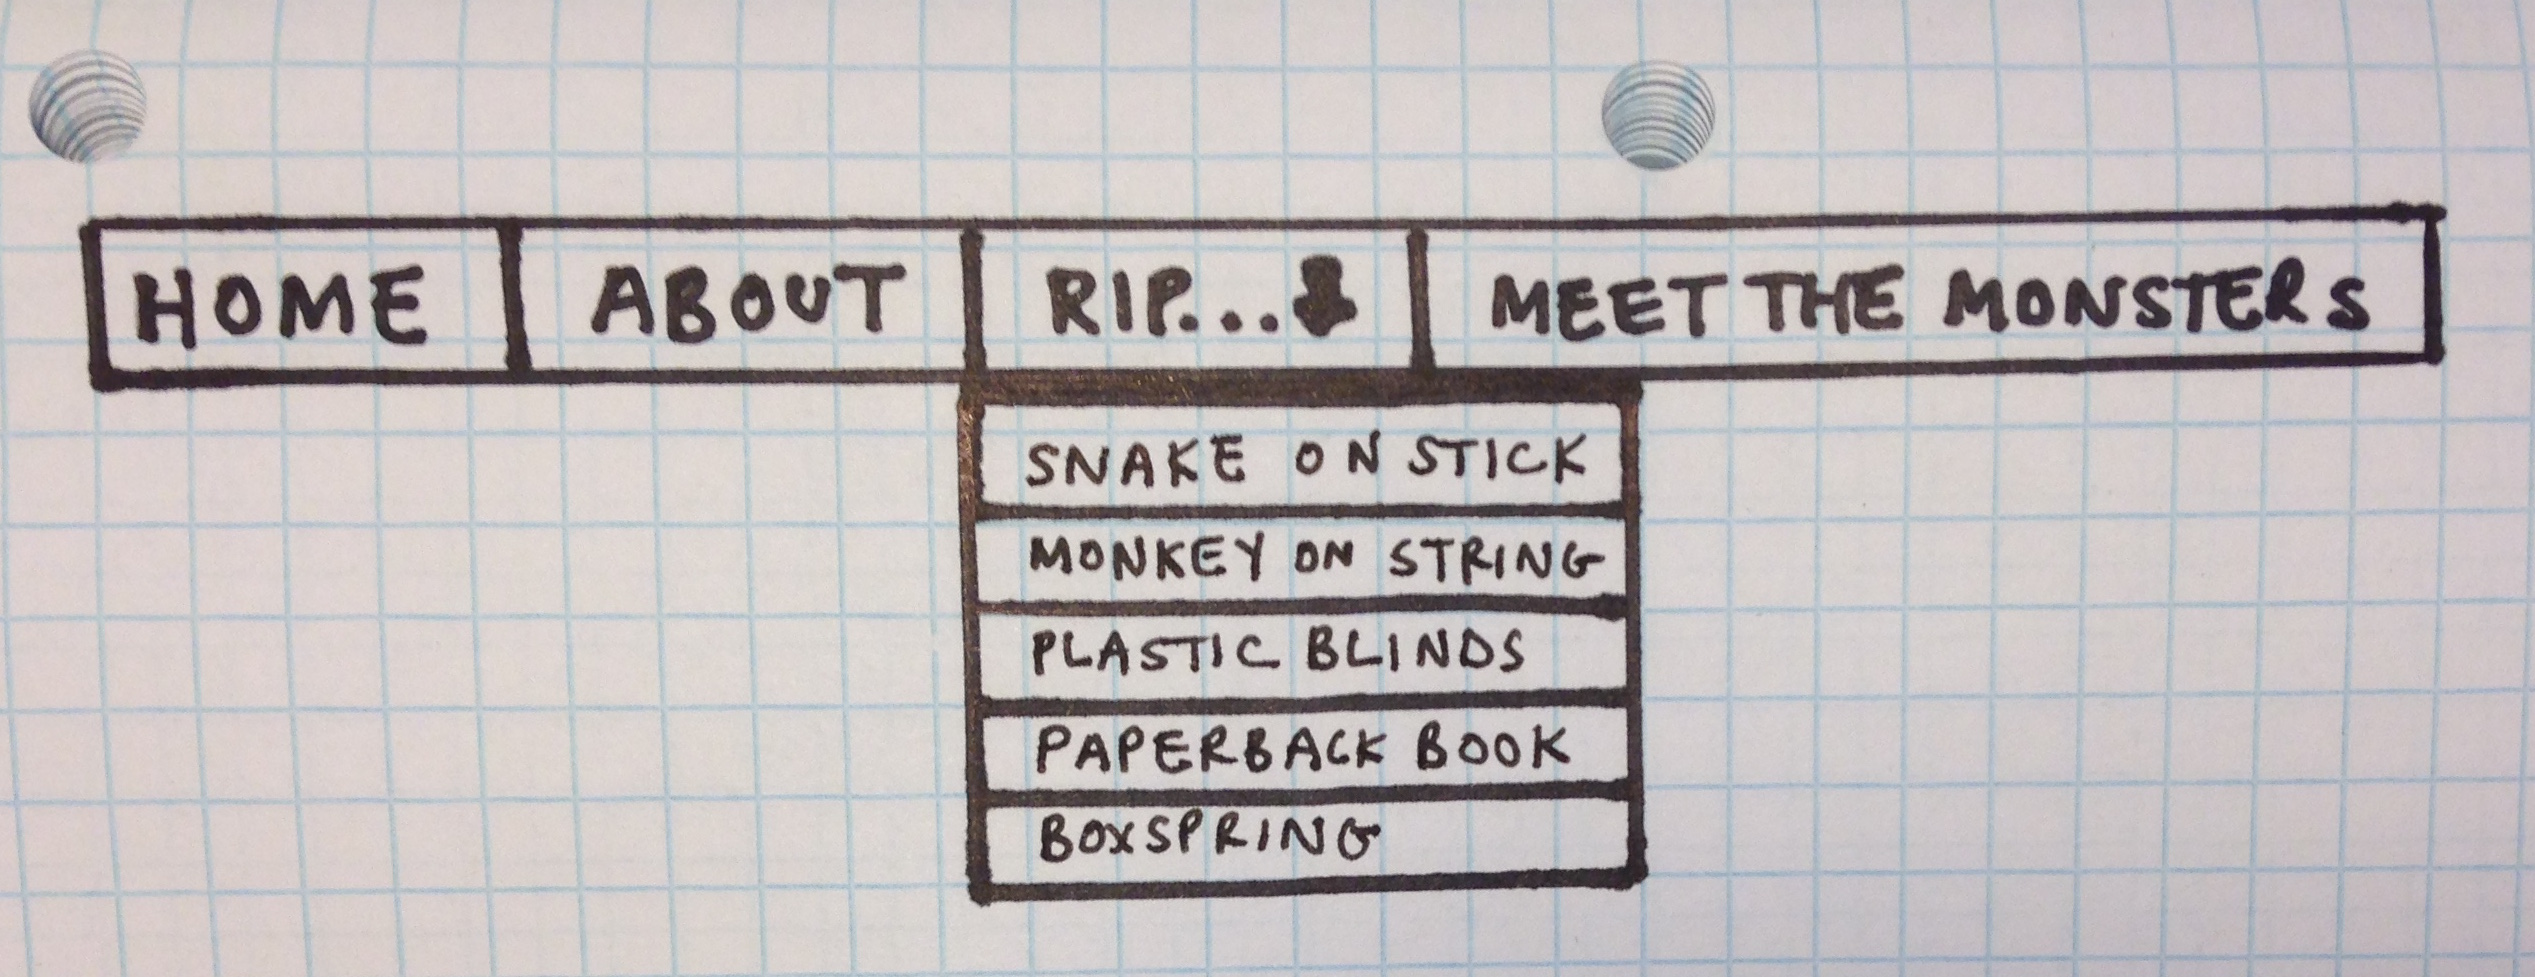 HOME ABOUT RIP... MEET THE MONSTERS
SNAKE ON STICK
MONKEY ON STRING
PLASTIC BLINDS
PAPERBACK BOOK
BOXSPRING